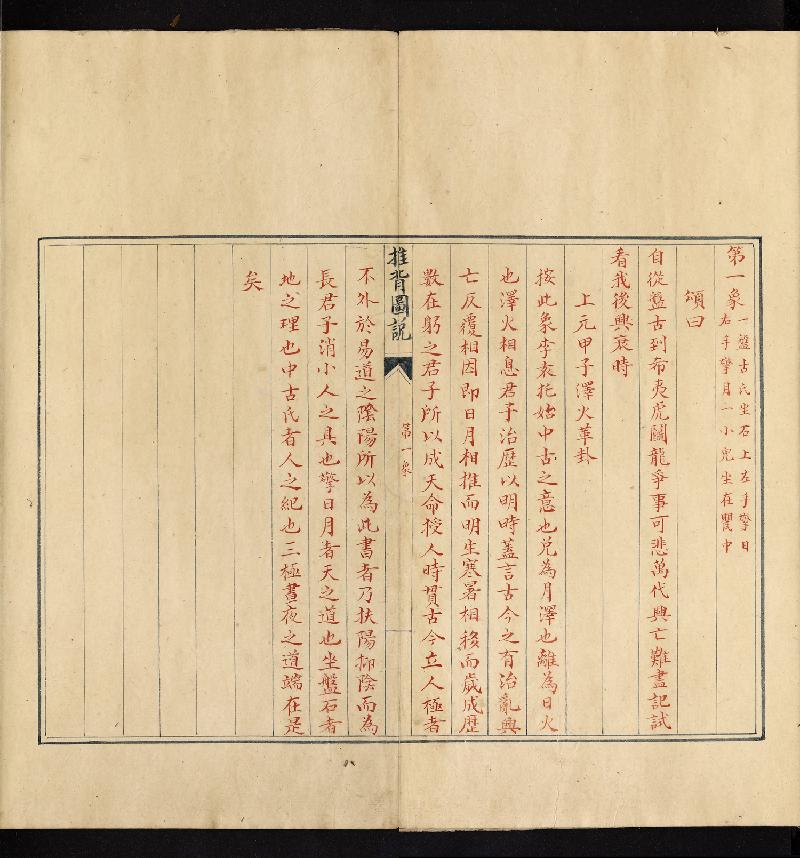 第一象 一盤古氏坐石上左手擎日
右手擎月一小兒坐在罌中
頌曰
自從盤古到希夷虎鬬龍爭事可悲萬代興亡難盡記試
看我後興衰時
上元甲子澤火革卦
按此象李袁托始中古之意也兌為月澤也離為日火
也澤火相息君子治歷以明時蓋言古今之有治亂興
亡反覆相因即日月相推而明生寒暑相移而歲成歷
數在躬之君子所以成天命授人時貫古今立人極者
推背圖說
第一象
不外於易道之陰陽所以為此書者乃扶陽抑陰而為
長君子消小人之具也擎日月者天之道也坐盤石者
地之理也中古氏者人之紀也三極晝夜之道端在是
矣